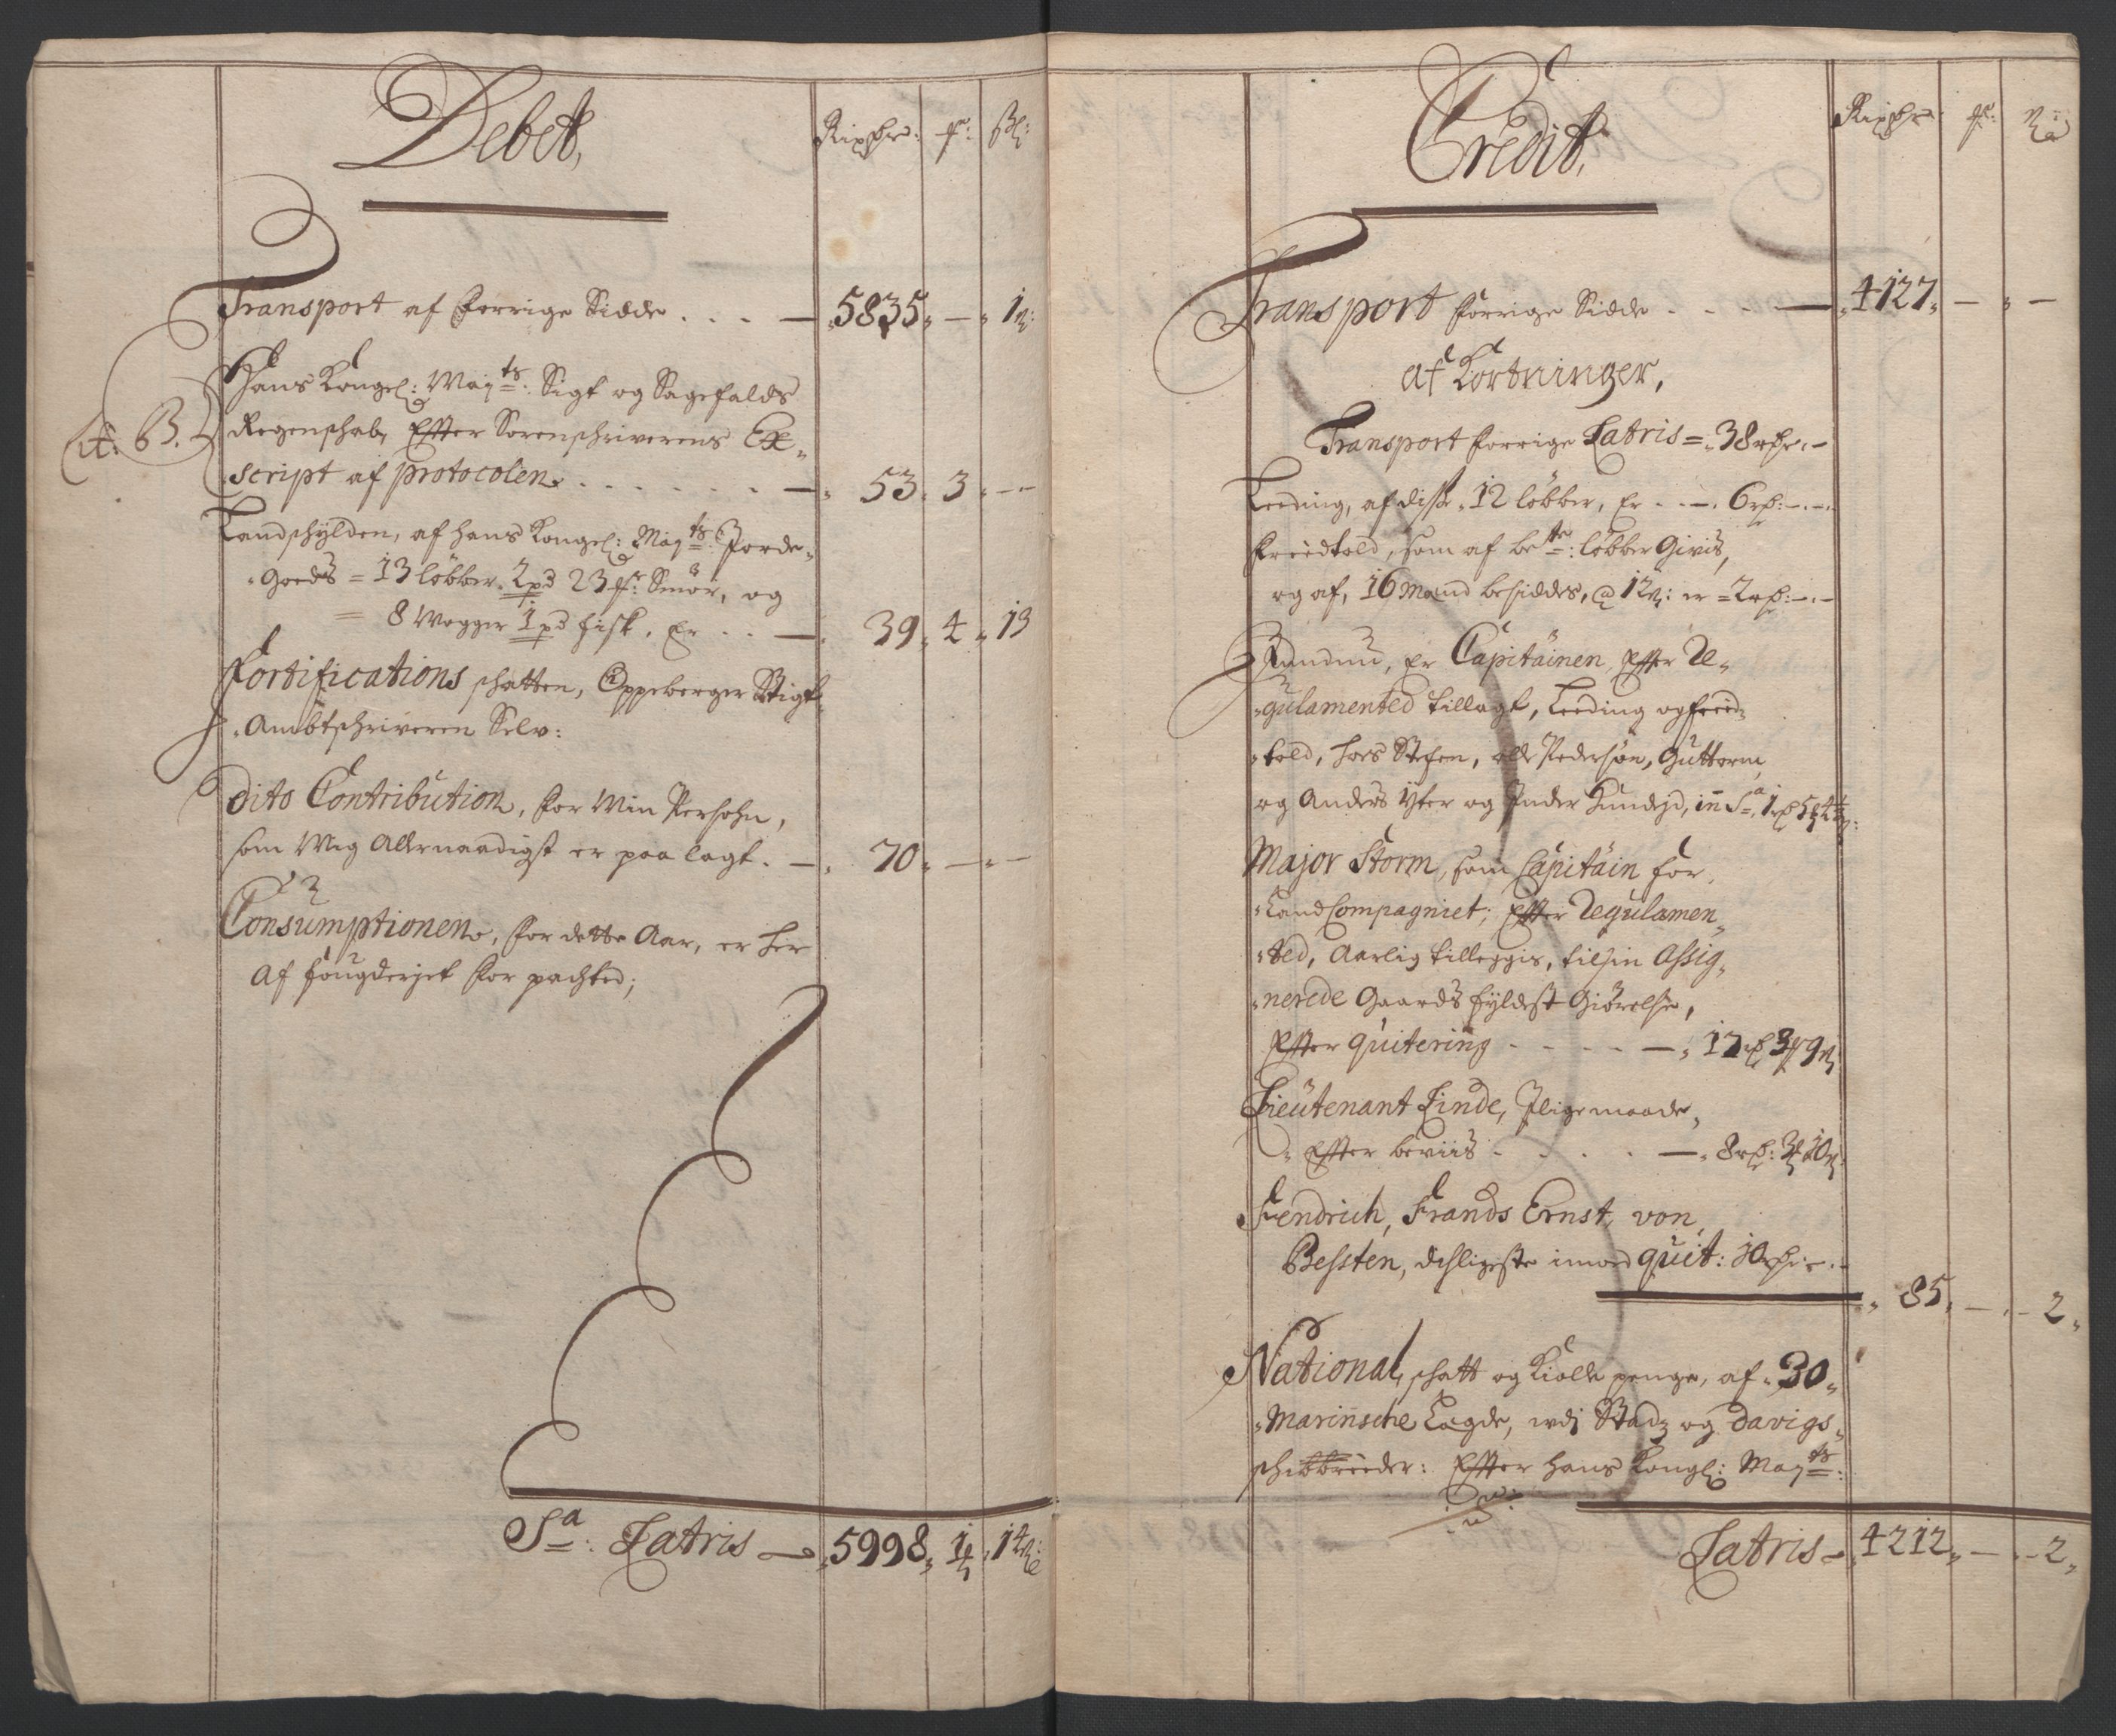 Debet,
Rixdr: ₰: ßl:
Transport af forrige Sidde . . . — 5835 „ — „ 1
Hans Kongel: May<sup>ts</sup>: Sigt og Sagefalds
Lit: B. Regenschab, Effter Sorenschriverens Ex„
script af protocolen . . . . . . — 53 „ 3 „ —
Landschylden, af hans Kongel: May<sup>ts</sup>: Jorde„
„Goeds = 13 løbber 2 pd 23 Smør, og
= 8 Wogger 1 pd fisk, Er . . — 39 „ 4 „ 13
Fortifications schatten, Oppeberger Stigt„
„Ambtschriveren Selv:
Dito Contribution, for Min Persohn,
som Mig Allernaadigst er paa lagt. — 70 „ — „ —
Consumptionen, for dette Aar, er her
af fougderjet for pachted;
S<sup>a</sup>: Latris — 5998 „ 1 „ 14
Credit,
Rixdr: ₰:
Transport forrige Sidde . . . — 4127 „ — „ —
af Kortninger,
Transport forrige Latris = „38 rdr „ —
Leeding, af disse „12 løbber, Er . . — . 6 rd: — . —
freedtold, som af be<sup>te</sup>: løbber Givis,
og af, 16 Mand besiddes, @ 12 : er = 2 rd: — . —
Endnu, er Capitainen, effter Re„
„gulamented tillagt, Leeding og freed„
„told, hos Stefen, Olle Pedersøn, Guttorm
og Anders Yter og Inder Hundejd, in S<sup>a</sup>: 1 rd 5 4½
Major Storm, som Capitain for
„Land Compagniet; Effter Regulamen„
„ted, Aarlig tilleggis, til sin Assig„
„nerede Gaards fyldest Giørelse,
Effter quitering . . . . — „ 17 rd 3 9
Lieutenant Linde, Jlige maade,
„Effter beviis . . . . — „ 8 rd: 3 10
Fendrich, Frands Ernst von
Bessten, desligeste imod quit: 10 rdr: — . —
„ 85 „ — „ — 2 „
National, schatt og Kiolle penge, af „30„
„Marinsche Lægde, udj Stadz og Davigs„
schibbreeder: Effter hans Kongl: May<sup>ts</sup>:
Latris — 4212 „ — „ — 2 „